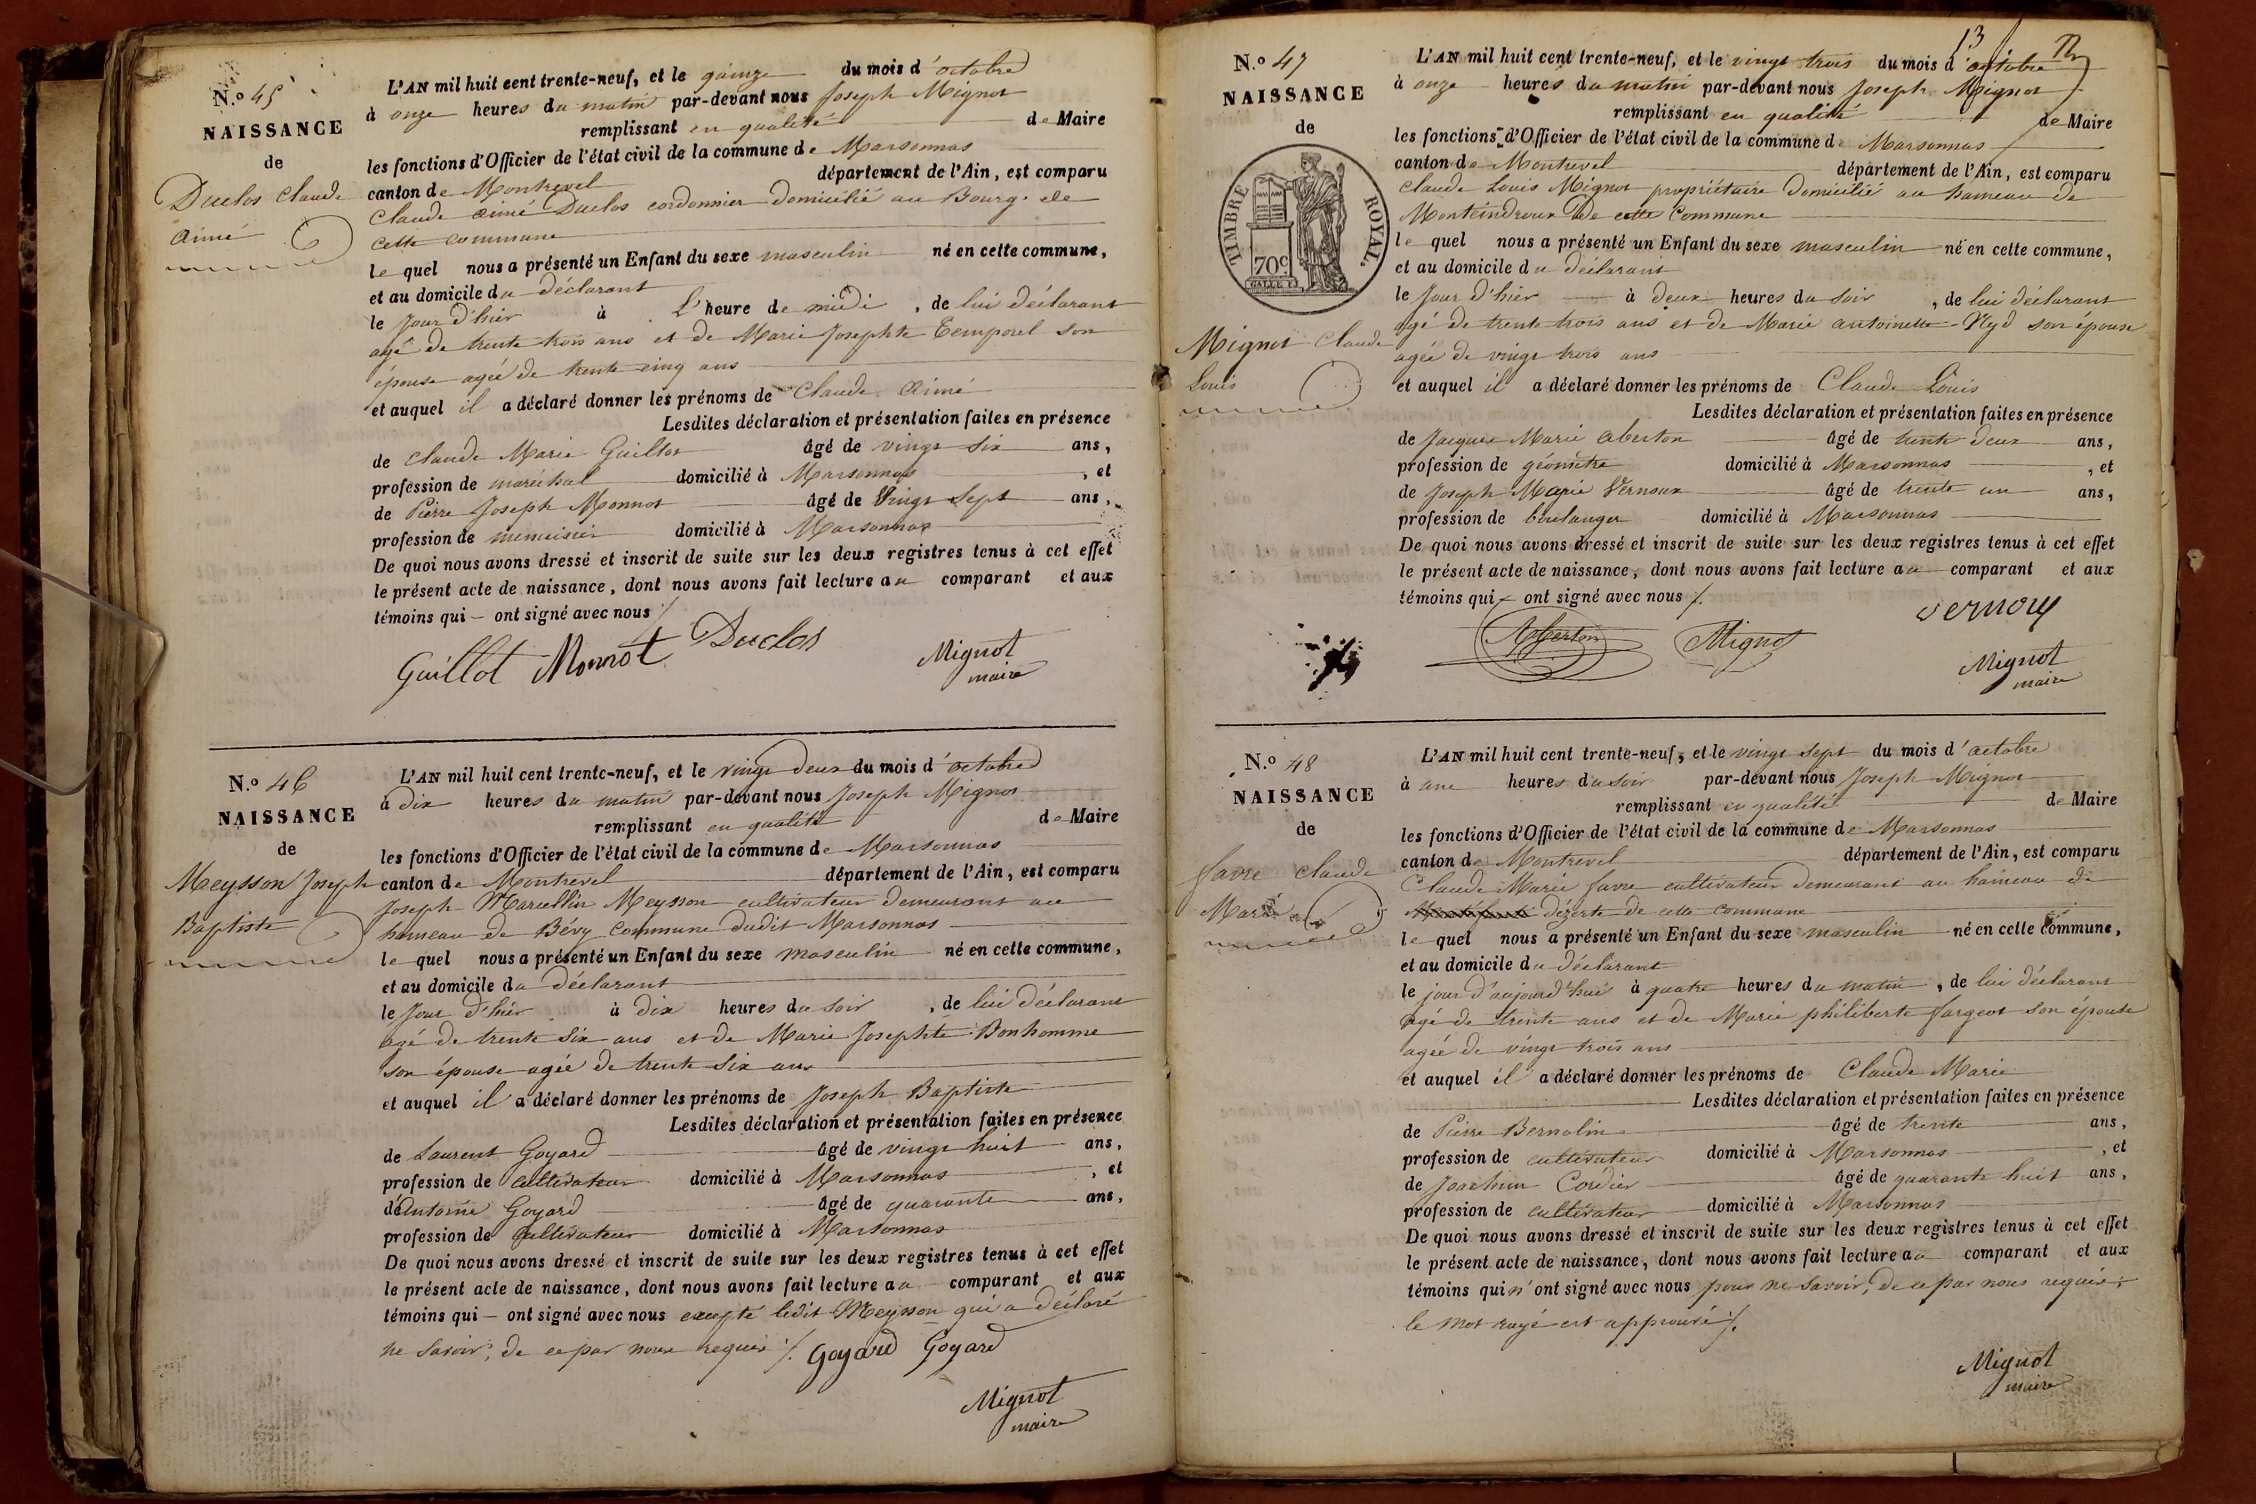 N.o 45
NAISSANCE
de
Duclos Claude
Aimé
L'AN mil huit cent trente-neuf, et le quinze du mois d'octobre
à onze heures du matin par-devant nous Joseph Mignot
remplissant en qualité de Maire
les fonctions d'Officier de l'état civil de la commune de Marsonnas
canton de Montrevel département de l'Ain, est comparu
Claude Aimé Duclos cordonnier domicilié au Bourg de
cette commune
le quel nous a présenté un Enfant du sexe masculin né en cette commune,
et au domicile du déclarant
le Jour d'hier à l'heure de midi, de lui déclarant
agé de trente trois ans et de Marie Josephte Temporel son
épouse agée de trente cinq ans
et auquel il a déclaré donner les prénoms de Claude Aimé
Lesdites déclaration et présentation faites en présence
de Claude Marie Guillot âgé de vingt six ans,
profession de maréchal domicilié à Marsonnas, et
de Pierre Joseph Monnot âgé de Vingt Sept ans,
profession de menuisier domicilié à Marsonnas
De quoi nous avons dressé et inscrit de suite sur les deux registres tenus à cet effet
le présent acte de naissance, dont nous avons fait lecture au comparant et aux
témoins qui – ont signé avec nous /.
Guillot Monnot Duclos
Mignot
maire
N.o 46
NAISSANCE
de
Meysson Joseph
Baptiste
L'AN mil huit cent trente-neuf, et le vingt deux du mois d'octobre
à dix heures du matin par-devant nous Joseph Mignot
remplissant en qualité de Maire
les fonctions d'Officier de l'état civil de la commune de Marsonnas
canton de Montrevel département de l'Ain, est comparu
Joseph Marcellin Meysson cultivateur demeurant au
hameau de Bévy commune dudit Marsonnas
le quel nous a présenté un Enfant du sexe masculin né en cette commune,
et au domicile du déclarant
le Jour d'hier à dix heures du soir, de lui déclarant
agé de trente six ans et de Marie Josephte Bonhomme
son épouse agée de trente six ans
et auquel il a déclaré donner les prénoms de Joseph Baptiste
Lesdites déclaration et présentation faites en présence
de Laurent Goyard âgé de vingt huit ans,
profession de cultivateur domicilié à Marsonnas, et
d'Antoine Goyard âgé de quarante ans,
profession de cultivateur domicilié à Marsonnas
De quoi nous avons dressé et inscrit de suite sur les deux registres tenus à cet effet
le présent acte de naissance, dont nous avons fait lecture au comparant et aux
témoins qui – ont signé avec nous excepté ledit Meysson qui a déclaré
ne savoir, de ce par nous requis /. Goyard Goyard
Mignot
maire
13
N.o 47
NAISSANCE
de
TIMBRE ROYAL.
70c
Mignot Claude
Louis
L'AN mil huit cent trente-neuf, et le vingt trois du mois d'octobre
à onze heures du matin par-devant nous Joseph Mignot
remplissant en qualité de Maire
les fonctions d'Officier de l'état civil de la commune de Marsonnas
canton de Montrevel département de l'Ain, est comparu
Claude Louis Mignot propriétaire domicilié au hameau de
Monteindroux de cette Commune
le quel nous a présenté un Enfant du sexe masculin né en cette commune,
et au domicile du déclarant
le Jour d'hier à deux heures du soir, de lui déclarant
agé de trente trois ans et de Marie Antoinette Nyd son épouse
agée de vingt trois ans
et auquel il a déclaré donner les prénoms de Claude Louis
Lesdites déclaration et présentation faites en présence
de Jacques Marie Aberton âgé de trente deux ans,
profession de géomètre domicilié à Marsonnas, et
de Joseph Marie Vernoux âgé de trente un ans,
profession de boulanger domicilié à Marsonnas
De quoi nous avons dressé et inscrit de suite sur les deux registres tenus à cet effet
le présent acte de naissance, dont nous avons fait lecture au comparant et aux
témoins qui – ont signé avec nous /.
Aberton Mignot vernoux
Mignot
maire
N.o 48
NAISSANCE
de
favre Claude
Marie
L'AN mil huit cent trente-neuf, et le vingt sept du mois d'octobre
à une heures du soir par-devant nous Joseph Mignot
remplissant en qualité de Maire
les fonctions d'Officier de l'état civil de la commune de Marsonnas
canton de Montrevel département de l'Ain, est comparu
Claude Marie favre cultivateur demeurant au hameau de
dézerte de cette commune
le quel nous a présenté un Enfant du sexe masculin né en cette commune,
et au domicile du déclarant
le jour d'aujourd'hui à quatre heures du matin, de lui déclarant
agé de trente ans et de Marie philiberte fargeot son épouse
agée de vingt trois ans
et auquel il a déclaré donner les prénoms de Claude Marie
Lesdites déclaration et présentation faites en présence
de Pierre Bernolin âgé de trente ans,
profession de cultivateur domicilié à Marsonnas, et
de Joachim Cordier âgé de quarante huit ans,
profession de cultivateur domicilié à Marsonnas
De quoi nous avons dressé et inscrit de suite sur les deux registres tenus à cet effet
le présent acte de naissance, dont nous avons fait lecture au comparant et aux
témoins qui n'ont signé avec nous pour ne savoir, de ce par nous requis;
le mot rayé est approuvé /.
Mignot
maire